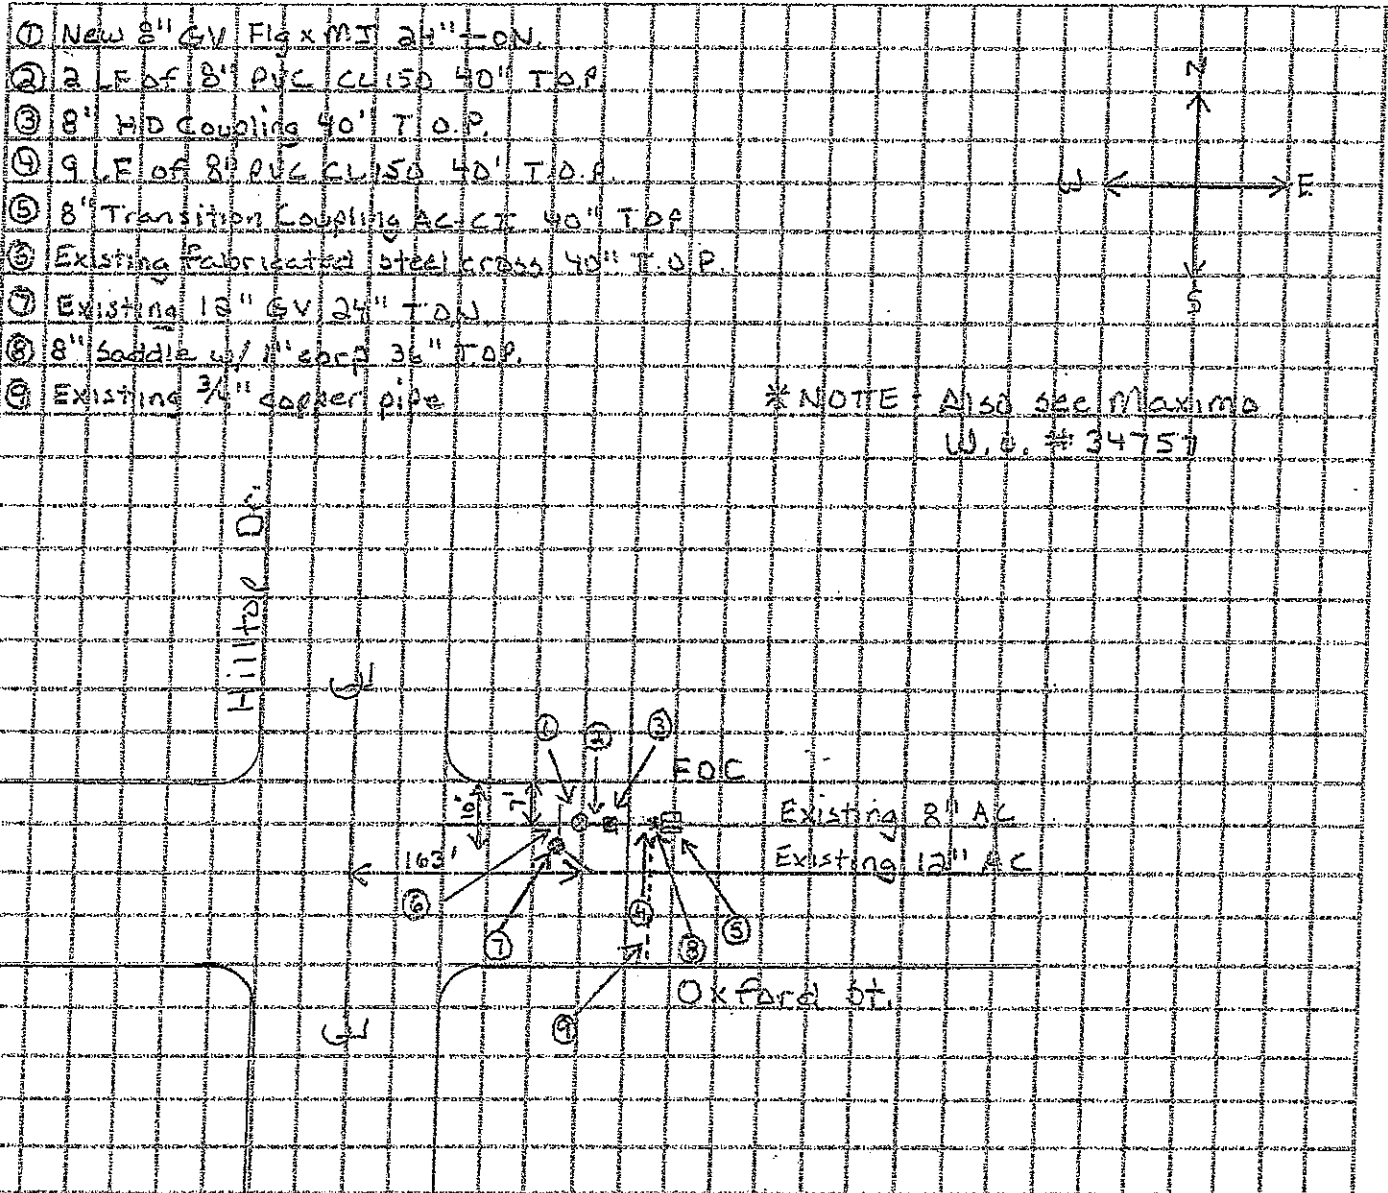 ① New 8" GV Flg x MJ 24" TON.
② 2 LF of 8" PVC CL150 40" T.O.P.
③ 8" HD Coupling 40" T.O.P.
④ 9 LF of 8" PVC CL150 40" T.O.P.
⑤ 8" Transition Coupling AC-CI 40" TOP
⑥ Existing fabricated steel cross 40" T.O.P.
⑦ Existing 12" GV 24" TON
⑧ 8" Saddle w/ 1" corp 36" TOP.
⑨ Existing 3/4" copper pipe
N
W
E
S
*NOTE - Also see Maximo
W.O. # 34757
Hilltop Dr.
CL
① ② ③
FOC
10'
7'
Existing 8" AC
163'
Existing 12" AC
⑥ ④
⑦ ⑧ ⑤
Oxford St.
⑨
CL